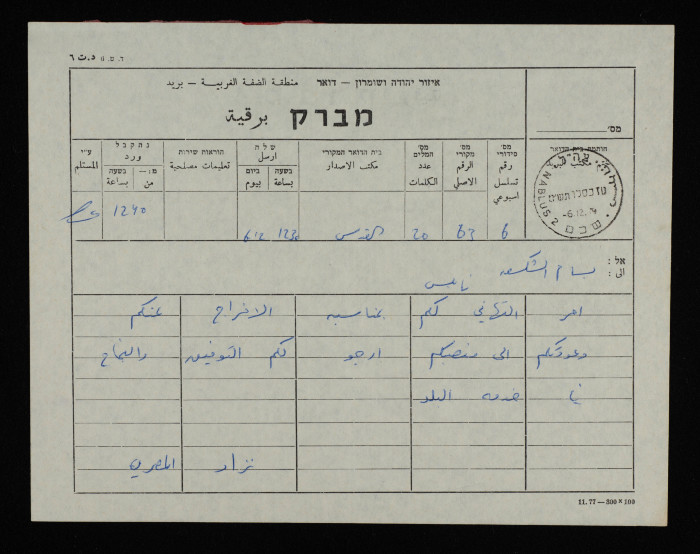 ד.ט.ח د.ت ٦
איזור יהודה ושומרון — דואר منطقة الضفة الغربية — بريد
מברק برقية
מס׳
מס׳ סידורי رقم تسلسل اسبوعي
מס׳ מקורי الرقم الاصلي
מס׳ המלים عدد الكلمات
בית הדואר המקורי مكتب الاصدار
שלח ارسل
בשעה بساعة
ביום بيوم
הוראות שירות تعليمات مصلحية
נתקבל ورد
מ:— من
בשעה بساعة
ע״י المستلم
חותמת בית הדואר
NABLUS 2
-6.12.
שכם
6 63 20 القدس 1230 6/12 1240
אל : الى :
بسام الشكعة
نابلس
احر التهاني لكم بمناسبة الافراج عنكم
وعودتكم الى منصبكم ارجو لكم التوفيق والنجاح
في خدمة البلد
نزار المصري
11.77 — 500 × 100